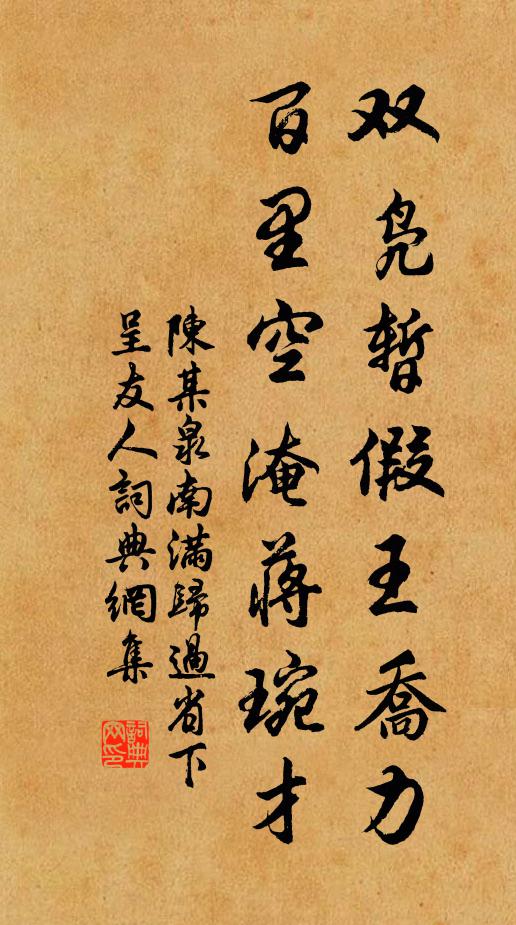 双凫暂假王喬力
百里空淹蔣琬才
陳某泉南满歸過省下
呈友人詞典網集
詞典网印